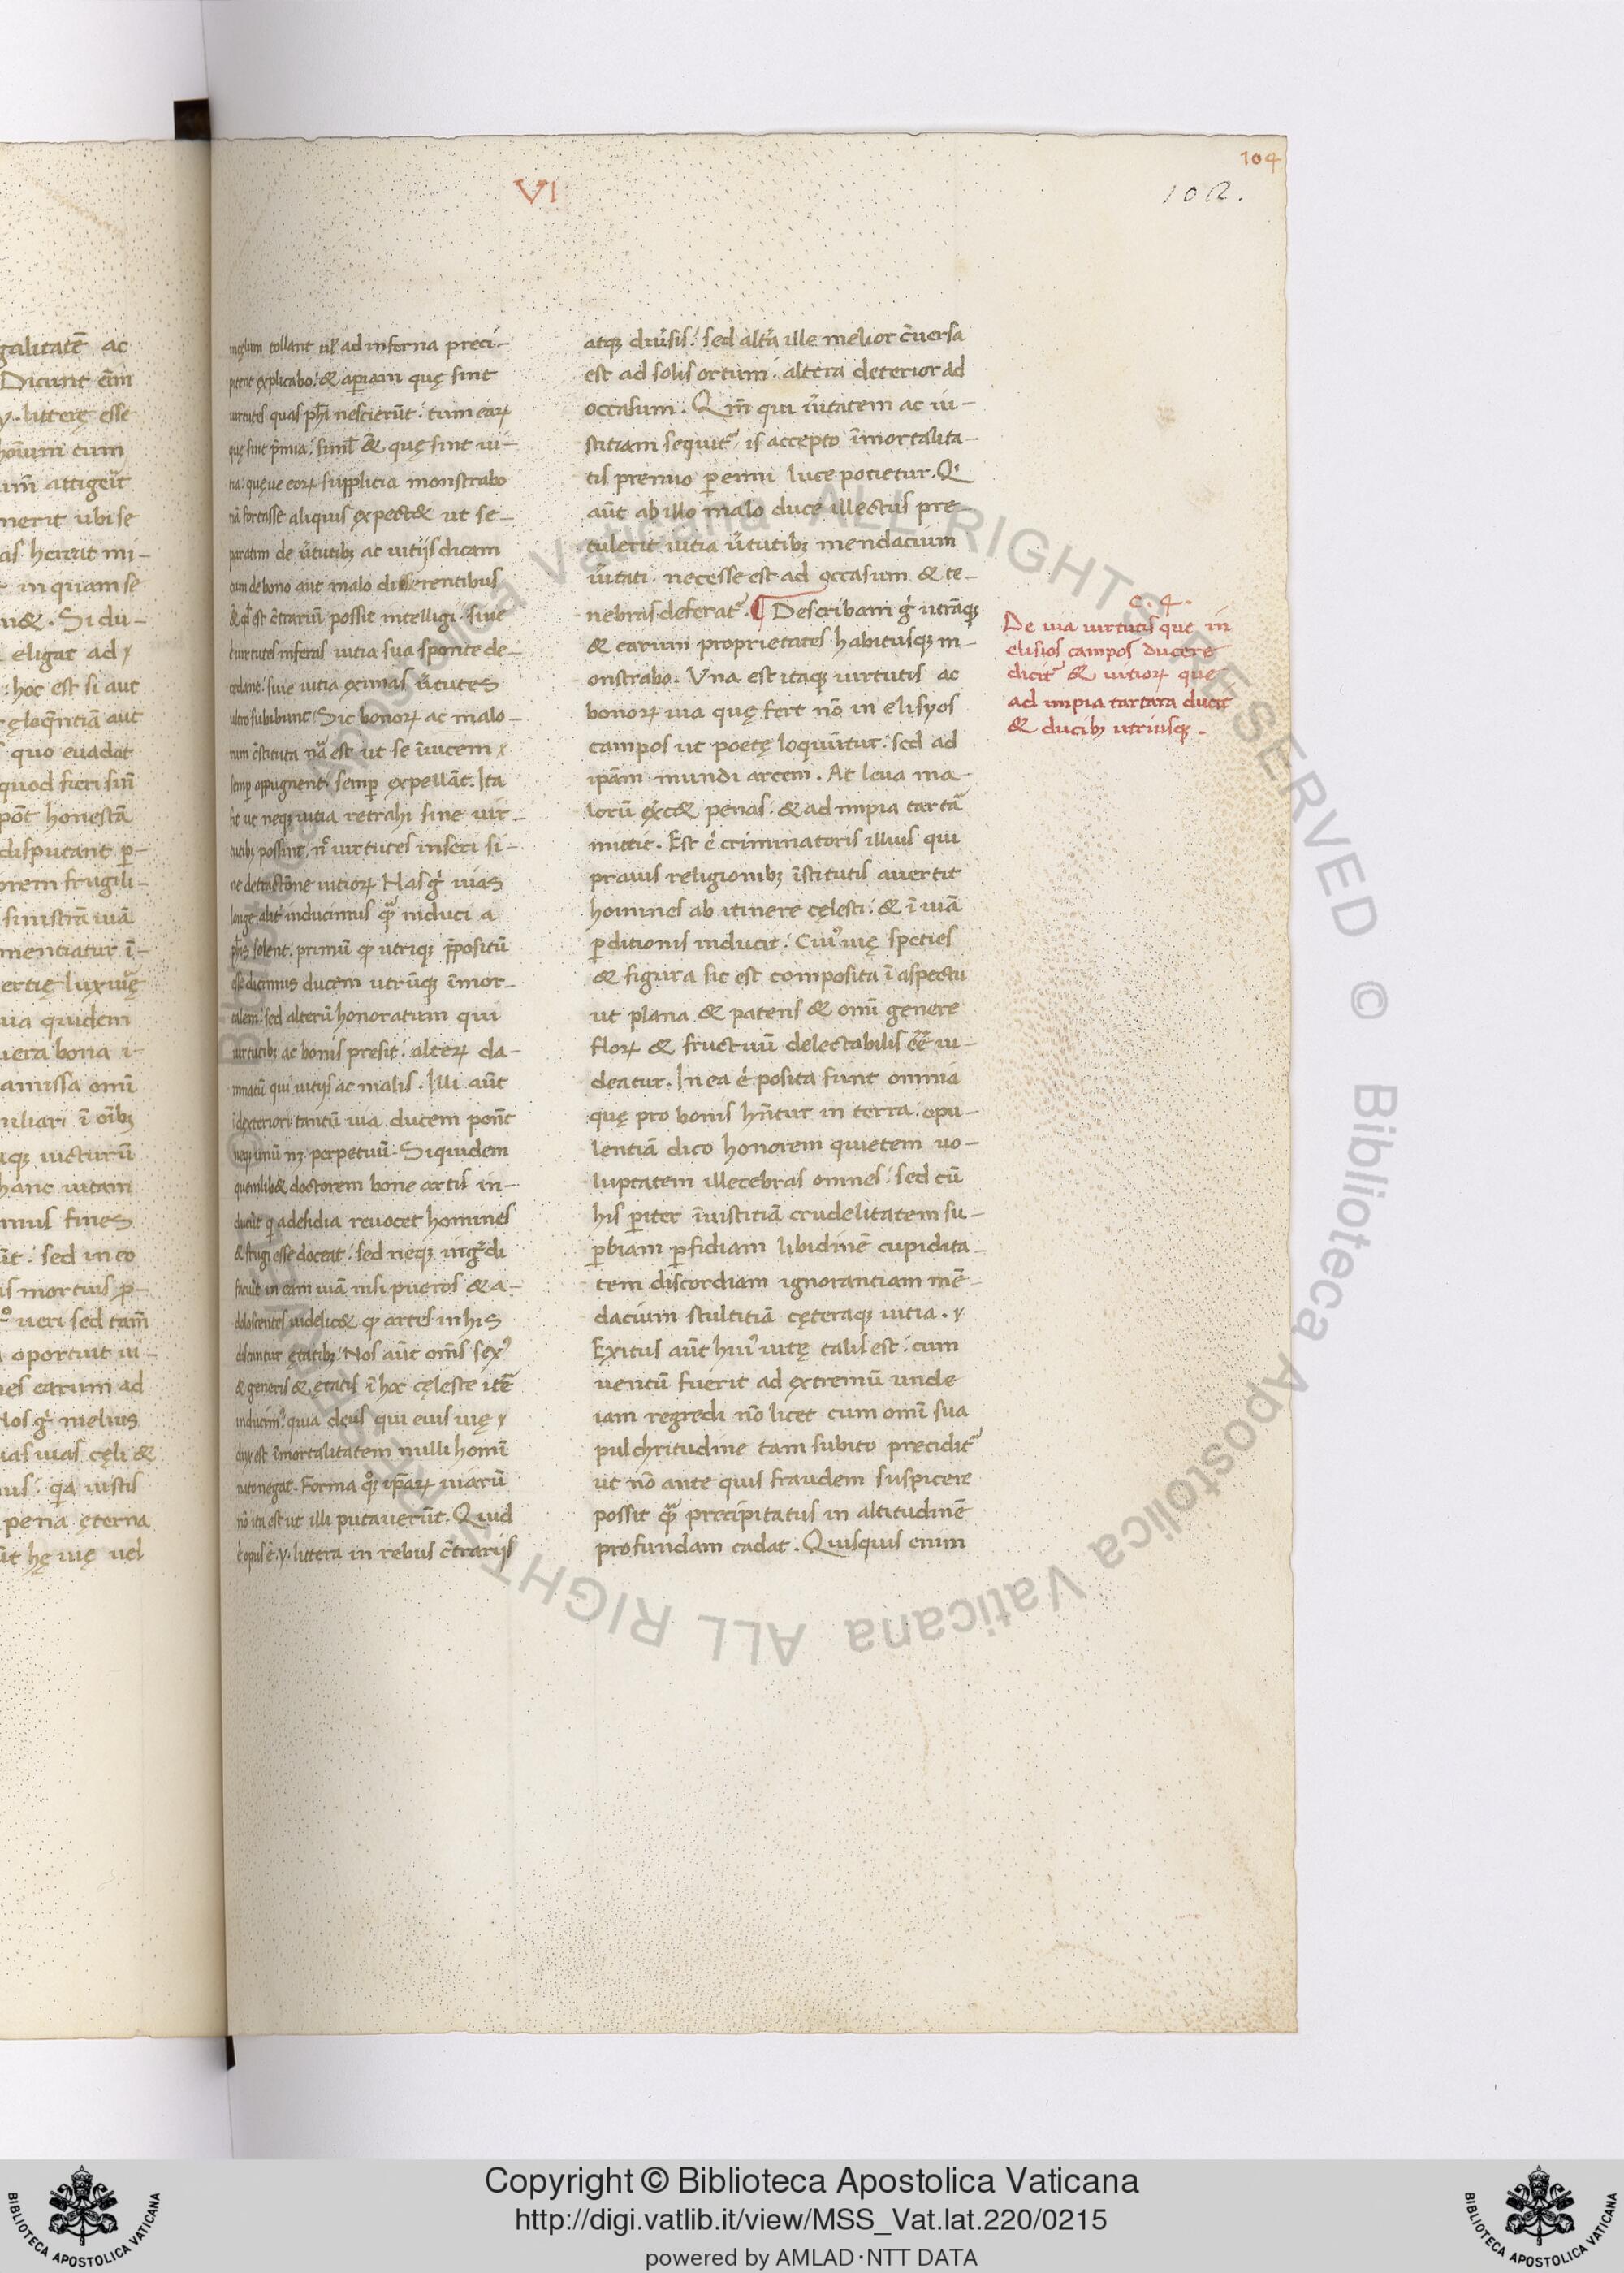 104
102.
VI
galitatē ac
Dicunt em̄
y. litterę esse
hoīum cum
attigeīt
merit ubi se
as hereat mi-
in quam se
&. Si du-
eligat ad
: hoc est si aut
ęloq̄ntiā aut
quo euadat
quod fieri sin̄
pōt honestā
disputant p-
orem frugili-
sinistrā uiā
mentiatur ī-
ertię luxuię
uia quidem
uera bona i-
amissa omī
miliari ī oīb;
atq; uicturū
hanc uitam
mus fines
ūt. sed in eo
is mortuis p-
ueri sed tam̄
oportuit ui-
nes earum ad
Nos gͥ melius
uas uias cęli &
us. qͣ iustis
pena ęterna
ut hę uię uel
męlum tollant ul̓ ad inferna preci-
pitent explicabo. & apiam quę sint
uirtutes quas ph̄i nescierūt. tum eaꝝ
quę sint p̄mia. simĺ & quę sint ui-
tia. quęue eoꝝ supplicia monstrabo
nā fortasse aliquis expect& ut se-
paratim de ūtutib; ac uitijs dicam
cum de bono aut malo disserentibus
& qd̓ est c̄trariū possit intelligi. siue
uirtutes inseras uitia sua sponte de-
cedant. siue uitia eximas ūtutes
ultro subibunt. Sic bonoꝝ ac malo-
rum c̄stituta nā est ut se īuicem
semp oppugnent. semp expellāt. Ita
fit ut neq; uitia retrahi sine uir-
tutib; possint. n̄ uirtutes inseri si-
ne detractōne uitioꝝ Nas gͥ uias
longe alit̓ inducimus qͣ induci a
ph̄is solent. primū ꝙ utriq; p̄positū
esse dicimus ducem utrūq; īmor-
talem. sed alterū honoratum qui
uirtutib; ac bonis presit. alteꝝ da-
mnatū qui uitijs ac malis. Illi aūt
dexteriori tantū uia ducem ponūt
eūq; unū nꝫ perpetuū. Siquidem
quemlib& doctorem bone artis in-
ducūt q̇ a desidia reuocet homines
& frugi esse doceat. sed neq; ingͣdi
faciūt in eam uiā nisi pueros & a-
dolescentes uidelic& ꝙ artes in his
discantur ętatib;. Nos aūt omīs sexꝰ
& generis & ętatis ī hoc cęleste itē
inducimꝰ quia deus qui eius uię
dux est īmortalitatem nulli homī
nato negat. Forma qͦꝫ ip̄aꝝ uiarū
nō ita est ut illi putauerūt. Quid
ē opus .y. littera in rebus c̄trarijs
atq; diūsis. sed alt̓a ille melior c̄uersa
est ad solis ortum. altera deterior ad
occasum. Qm̄ qui ūitatem ac iu-
stitiam sequitᷣ is accepto īmortalita-
tis premio perenni luce potietur. Qͥ
aūt ab illo malo duce illectus pre-
tulerit uitia ūtutib; mendacium
ūitati. necesse est ad occasum & te-
nebras deferatᷣ. ¶ Describam gͥ utrāq;
& earum proprietates habitusq; m-
onstrabo. Vna est itaq; uirtutis ac
bonoꝝ uia quę fert nō in elisyos
campos ut poetę loquūtur. sed ad
ipām mundi arcem. At leua ma-
lorū ex̓c& penas. & ad impia tartā
mittit. Est ē criminatoris illius qui
prauis religionib; īstitutis auertit
homines ab itinere cęlesti. & ī uiā
pditionis inducit. Cuiꝰ uię species
& figura sic est composita ī aspectu
ut plana & patens & omī genere
floꝝ & fructuū delectabilis eē ui-
deatur. In ea ē posita sunt omnia
quę pro bonis hn̄tur in terra. opu-
lentiā dico honorem quietem uo-
luptatem illecebras omnes. sed cū
his pͣiter īiustitiā crudelitatem su-
pbiam pfidiam libidinē cupidita-
tem discordiam ignorantiam mē-
dacium stultitiā cęteraq; uitia.
Exitus aūt huiꝰ uitę talis est. cum
uentū fuerit ad extremū unde
iam regredi nō licet cum omī sua
pulchritudine tam subito preciditᷣ
ut nō ante quis fraudem suspicere
possit qͣ precipitatus in altitudinē
profundam cadat. Quisquis enim
C. 4.
De uia uirtutis que in
elisios campos ducere
dicitᷣ & uitioꝝ que
ad impia tartara ducit
& ducib; utriusq;.
Copyright © Biblioteca Apostolica Vaticana
http://digi.vatlib.it/view/MSS_Vat.lat.220/0215
powered by AMLAD·NTT DATA
BIBLIOTECA APOSTOLICA VATICANA
BIBLIOTECA APOSTOLICA VATICANA
© Biblioteca Apostolica Vaticana ALL RIGHTS RESERVED © Biblioteca Apostolica Vaticana ALL RIGHTS RESERVED